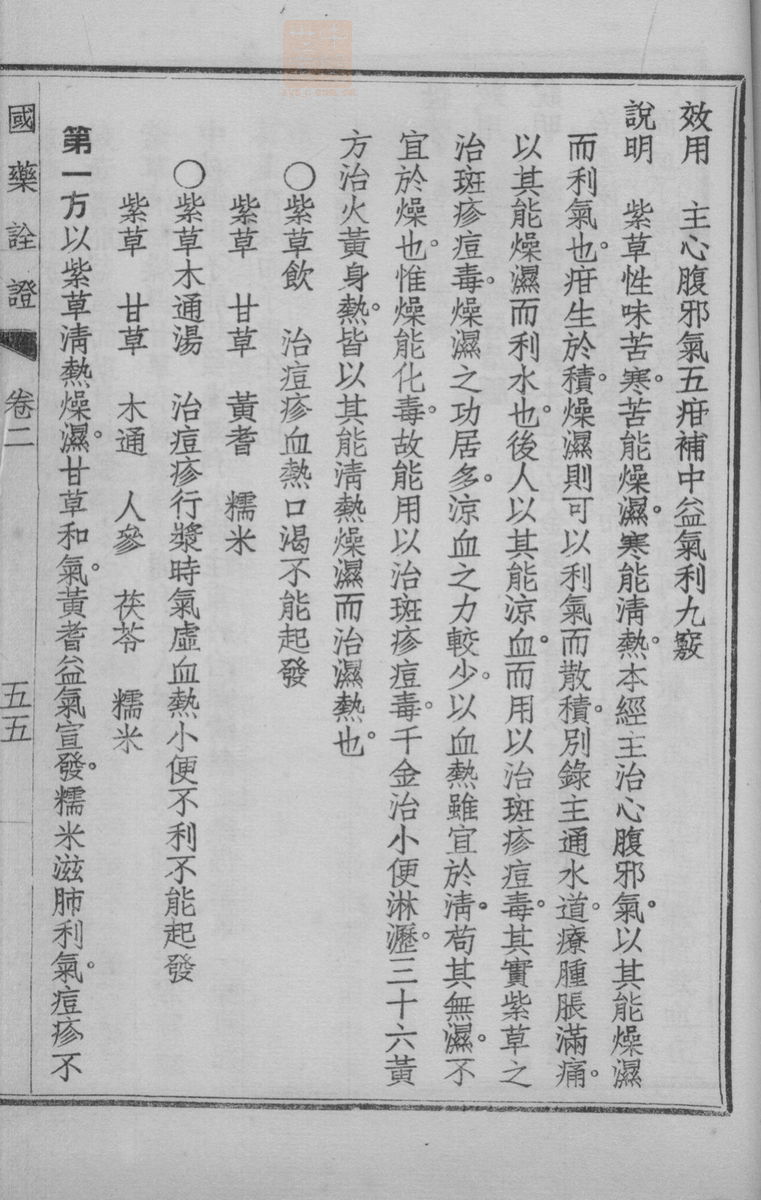 效用　主心腹邪氣五疳補中益氣利九竅
說明　紫草性味苦寒。苦能燥濕。寒能淸熱。本經主治心腹邪氣。以其能燥濕
而利氣也。疳生於積。燥濕則可以利氣而散積。別錄主通水道。療腫脹滿痛。
以其能燥濕而利水也。後人以其能涼血。而用以治斑疹痘毒。其實紫草之
治斑疹痘毒。燥濕之功居多。涼血之力較少。以血熱雖宜於淸。苟其無濕。不
宜於燥也。惟燥能化毒。故能用以治斑疹痘毒。千金治小便淋瀝。三十六黃
方治火黃身熱。皆以其能淸熱燥濕而治濕熱也。
〇紫草飲　治痘疹血熱口渴不能起發
紫草　甘草　黃耆　糯米
〇紫草木通湯　治痘疹行漿時氣虛血熱小便不利不能起發
紫草　甘草　木通　人參　茯苓　糯米
第一方以紫草淸熱燥濕。甘草和氣。黃耆益氣宣發。糯米滋肺利氣。痘疹不
國藥詮證　卷二　五五